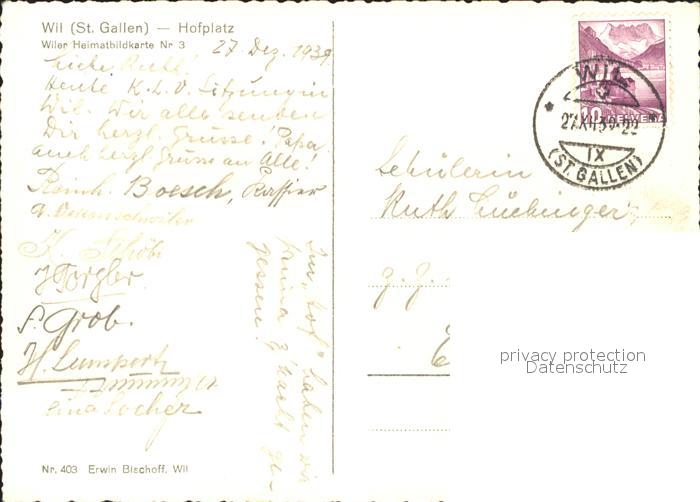 Wil (St. Gallen) — Hofplatz
Wiler Heimatbildkarte Nr 3
27 Dez. 1939
Liebe Ruth!
Heute K.L.V. Sitzung in
Wil. Wir alle senden
Dir herzl. Grüsse! Papa.
auch herzl. Grüsse an Alle!
Reinh. Boesch, Kassier
K. Schöb
J. Torgler
S. Grob.
H. Lumpert
Locher
Im „Hof" haben wir
prima z'Nacht ge-
gessen!
Nr. 403 Erwin Bischoff. Wil
10 HELVETIA
WIL
27.XII.39-22
IX
(ST. GALLEN)
Schülerin
Ruth Lüchinger
z. Z.
E
privacy protection
Datenschutz